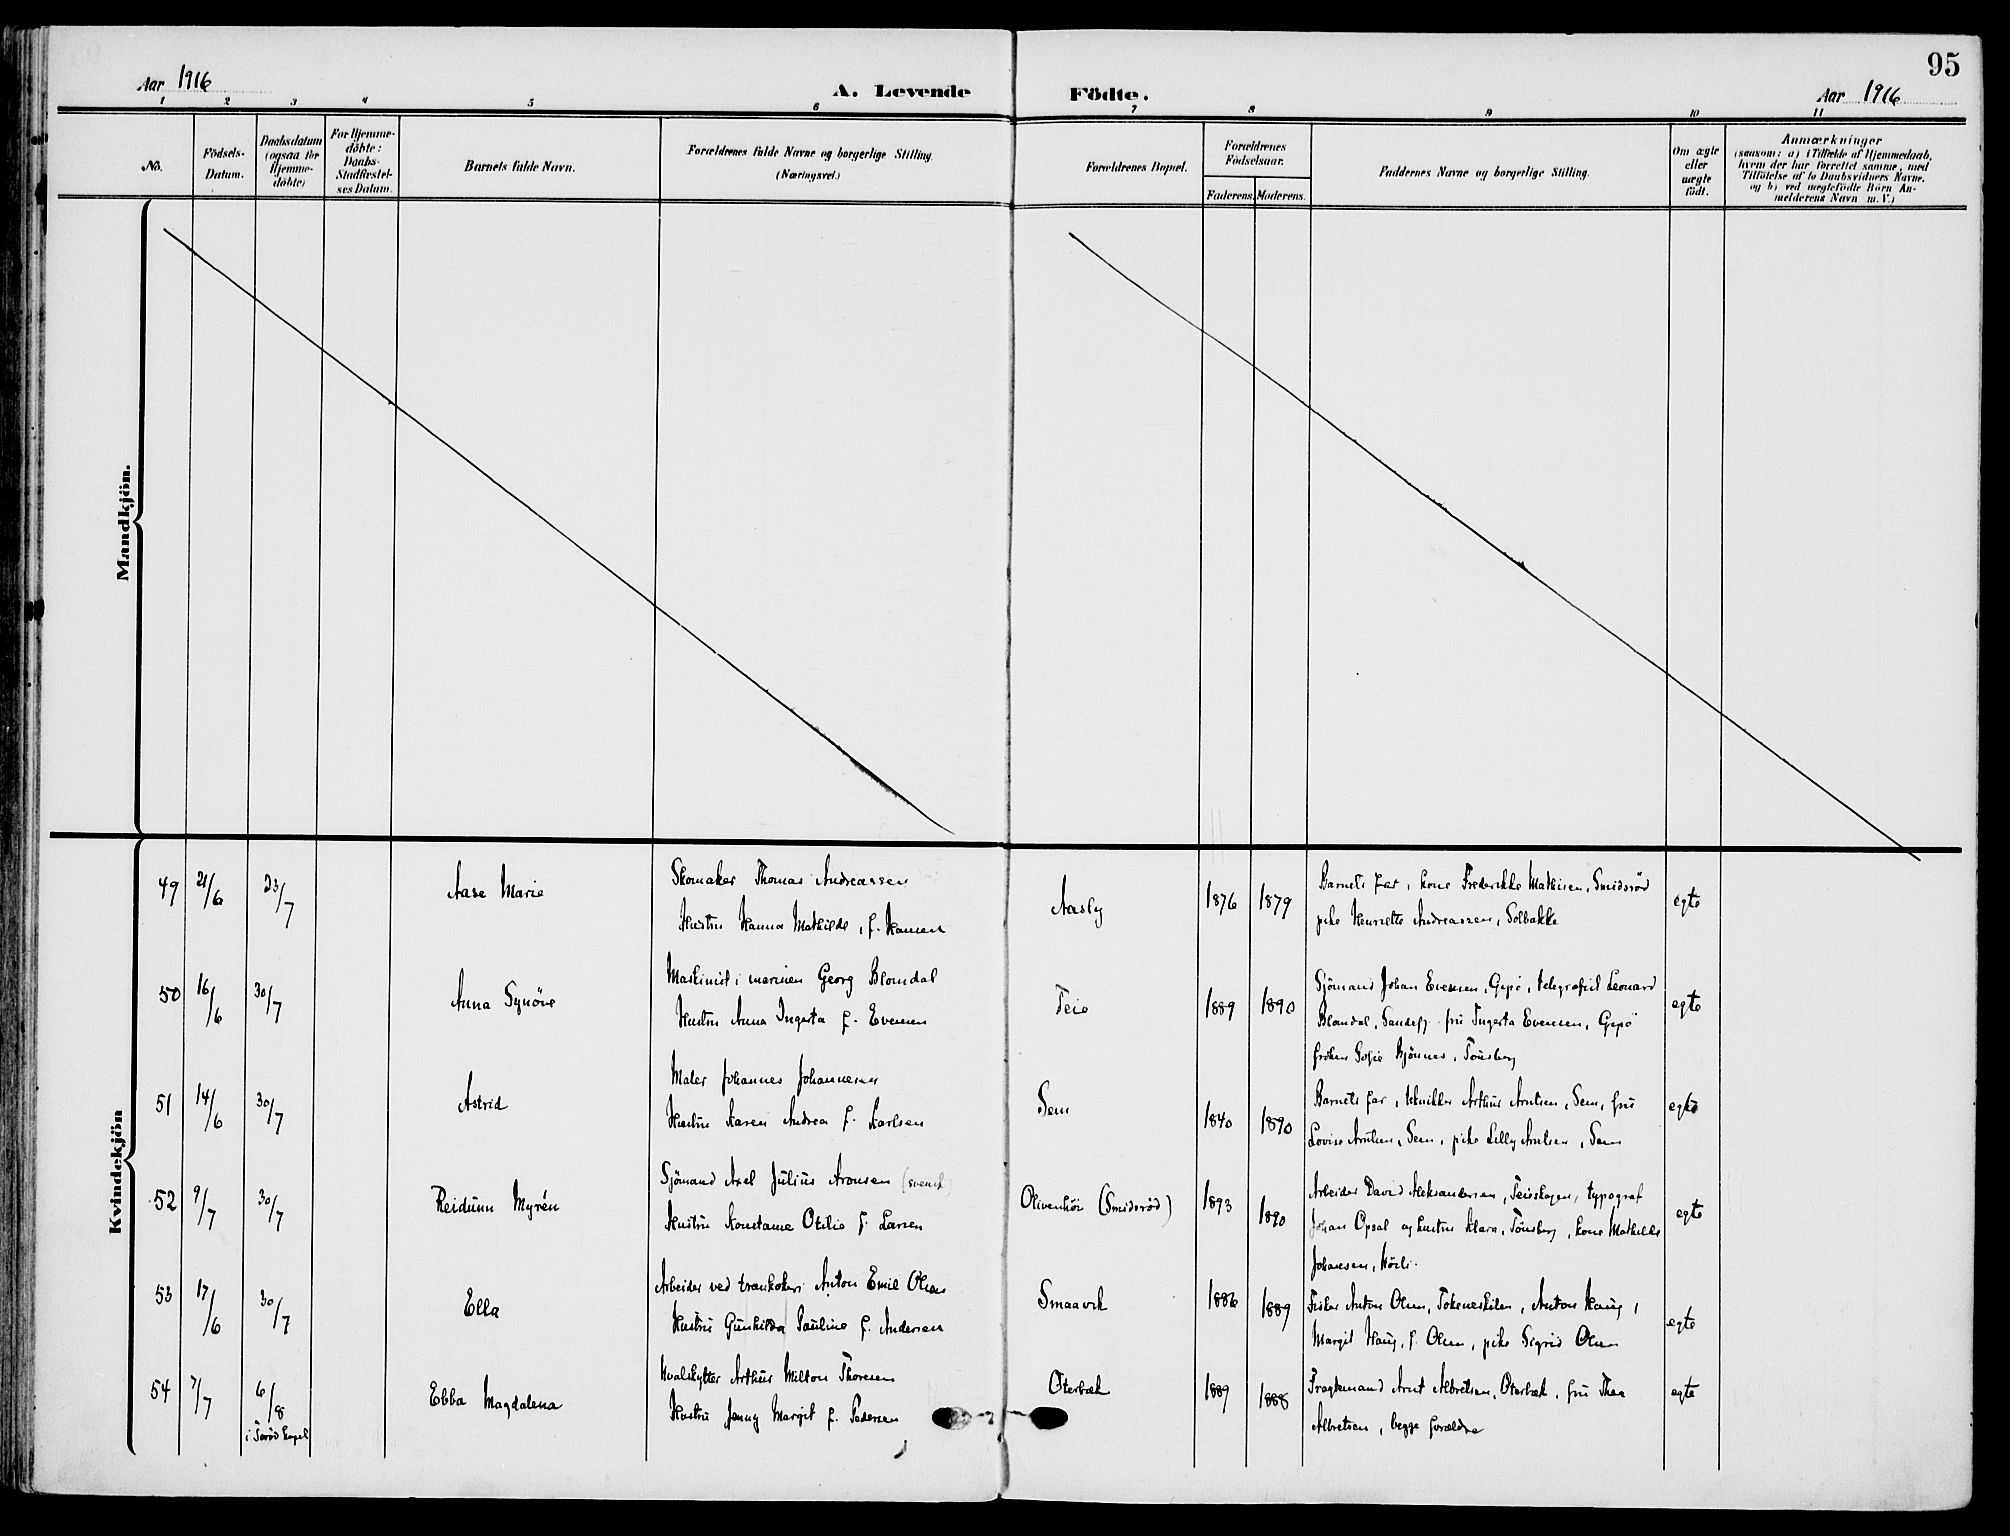 95
Aar 1916
A. Levende Födte.
Aar 1916
1 2 3 4 5 6 7 8 9 10 11
No.
Födsels-
Datum.
Daabsdatum
(ogsaa for
Hjemme-
döbte)
For Hjemme-
döbte:
Daabs-
Stadfæstel-
ses Datum.
Barnets fulde Navn.
Forældrenes fulde Navne og borgerlige Stilling.
(Næringsvei.)
Forældrenes Bopæl.
Forældrenes
Födselsaar.
Faderens. Moderens.
Faddernes Navne og borgerlige Stilling.
Om ægte
eller
uægte
födt.
Anmærkninger
(saasom: a) i Tilfælde af Hjemmedaab,
hvem der har forrettet samme, med
Tilföielse af to Daabsvidners Navne.
og b) ved uægtefödte Börn An-
melderens Navn m. V.)
Mandkjön.
Kvindekjön
49 21/6 23/7 Aase Marie
Skomaker Thomas Andreassen
Hustru Hanna Mathilde, f. Hansen
Aasly 1876 1879
Barnets far, kone Frederikke Mathisen, Smidsröd
pike Henriette Andreassen, Solbakke
egte
50 16/6 30/7 Anna Synöve
Maskinist i marinen Georg Blomdal
Hustru Anna Ingerta f. Evensen
Teie 1889 1890
Sjömand Johan Evensen, Gipö, telegrafist Leonard
Blomdal, Sandefj. fru Ingerta Evensen, Gipö
fröken Sofie Bjönnes, Tönsberg
egte
51 14/6 30/7 Astrid
Maler Johannes Johannesen
Hustru Karen Andrea f. Karlsen
Sem 1840 1890
Barnets far, tekniker Arthur Arntsen, Sem, fru
Lovise Arntsen, Sem, pike Lilly Arntsen, Sem
egte
52 9/7 30/7 Reidunn Myrén
Sjömand Axel Julius Aronsen (svensk)
Hustru Konstanse Otilie f. Larsen
Olivenhöi (Smidsröd) 1893 1890
Arbeider David Aleksandersen, Teieskogen, typograf
Johan Opsal og hustru Klara, Tönsberg, kone Mathilde
Johansen,
egte
53 17/6 30/7 Ella
Arbeider ved trankokeri Anton Emil Olsen
Hustru Gunhilda Pauline f. Andersen
Smaavik 1886 1889
Fisker Anton Olsen, Tokeneskilen, Anton Haug,
Margit Haug, f. Olsen, pike Sigrid Olsen
egte
54 7/7 6/8 Ebba Magdalena
i Teröd kapel
Hvalskytter Arthur Milton Thoresen
Hustru Jenny Margit f. Pedersen
Oterbæk 1889 1888
Fragtemand Arnt Albretsen, Oterbæk, fru Thea
Albretsen, begge forældre
egte